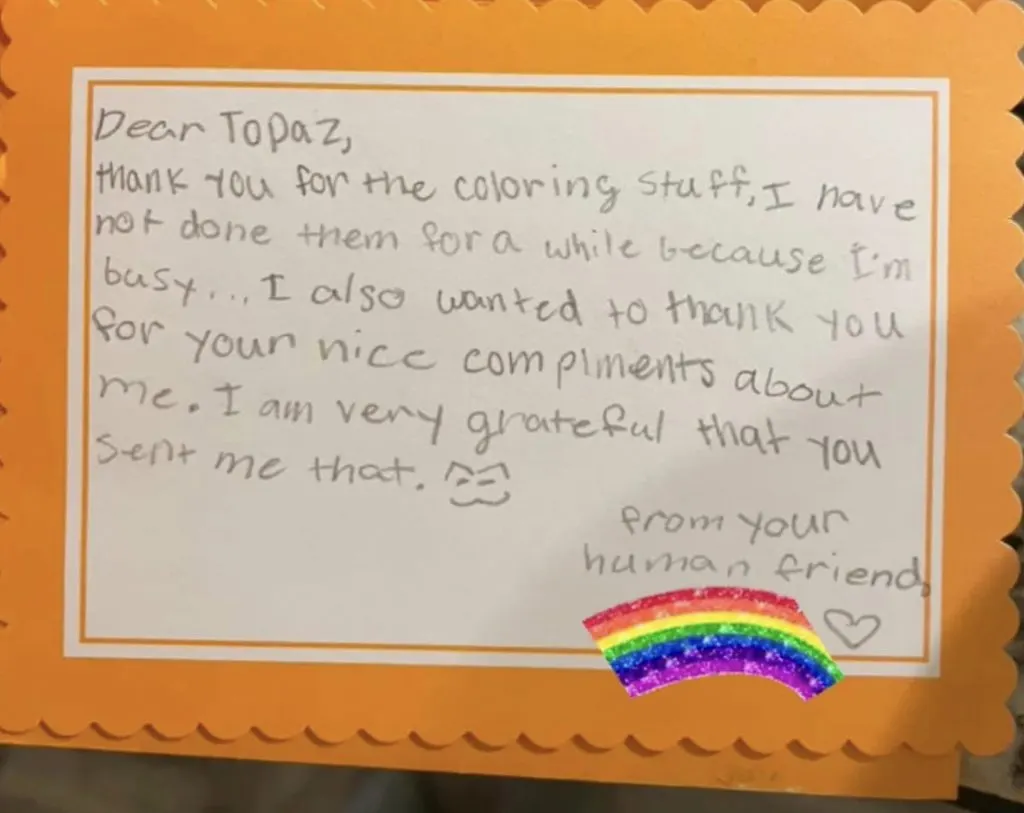 Dear Topaz,
thank you for the coloring stuff, I have
not done them for a while because I'm
busy... I also wanted to thank you
for your nice complments about
me. I am very grateful that you
sent me that.
from your
human friend,